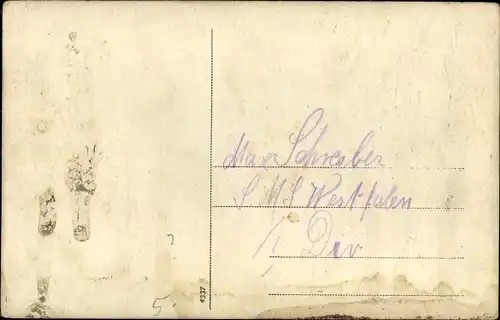 Max Schreiber
S M S Westfalen
1/ Div
5.
4337